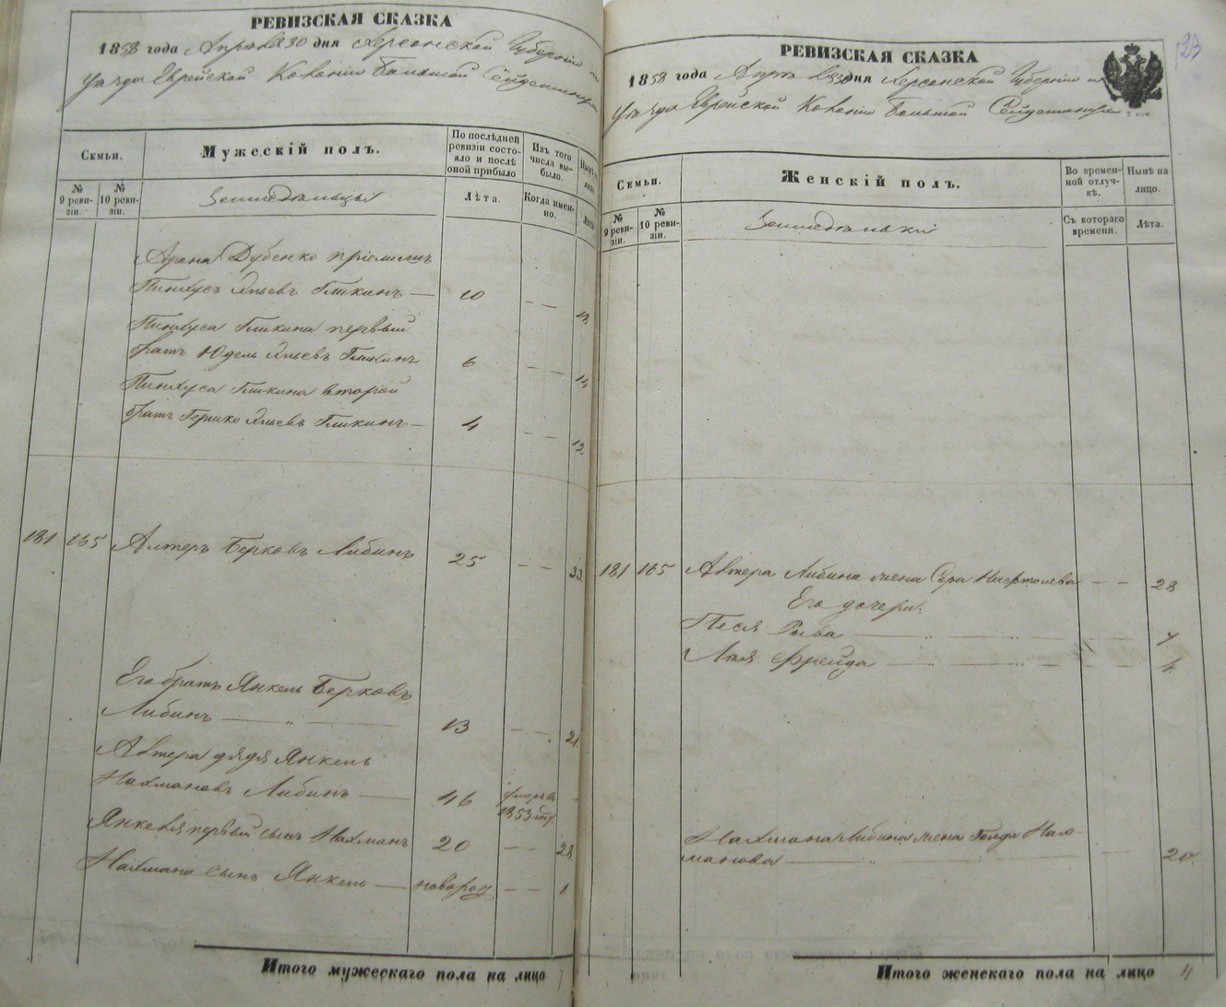 РЕВИЗСКАЯ СКАЗКА
1858 года Апреля 30 дня Херсонской Губернии и
уезда Еврейской Колонии Большой Сейдеминухи
Семьи.
Мужескій полъ.
По послѣдней ревизіи состояло и послѣ оной прибыло
Изъ того числа выбыло.
№ 9 ревизіи.
№ 10 ревизіи.
Земледѣльцы
Лѣта.
Когда именно.
Арона Дубенко пріемышъ
Пинхусъ Гликинъ — 10 — —
Пинхуса Гликина первый
братъ Юдель Гликинъ 6 — —
Пинхуса Гликина второй
братъ Гершко Гликинъ — 4 — — 12
181 165 Алтеръ Берковъ Либинъ 25 — — 33
Его братъ Янкель Берковъ
Либинъ — „ — 13 — — 21
Алтера дядя Янкель
Нахмановъ Либинъ — 46 1853 -
Янкеля первый сынъ Нахманъ 20 — 28
Нахмана сынъ Янкель — новород — — 1
Итого мужескаго пола на лицо 7
23
РЕВИЗСКАЯ СКАЗКА
1858 года Апреля 30 дня Херсонской Губерніи и
уезда Еврейской Колоніи Большой Сейдеминухи
Семьи.
Женскій полъ.
Во временной отлучкѣ.
Нынѣ на лицо.
№ 9 ревизіи.
№ 10 ревизіи.
Земледѣлки
Съ котораго времени.
Лѣта.
181 165 Алтера Либина жена Сара — — 28
Его дочери:
Песя Рыва — „ — „ — 7
Лея Фрейда — „ — „ — 4
Нахмана Либина жена Голда Нах-
манова — „ — „ — 20
Итого женскаго пола на лицо 4